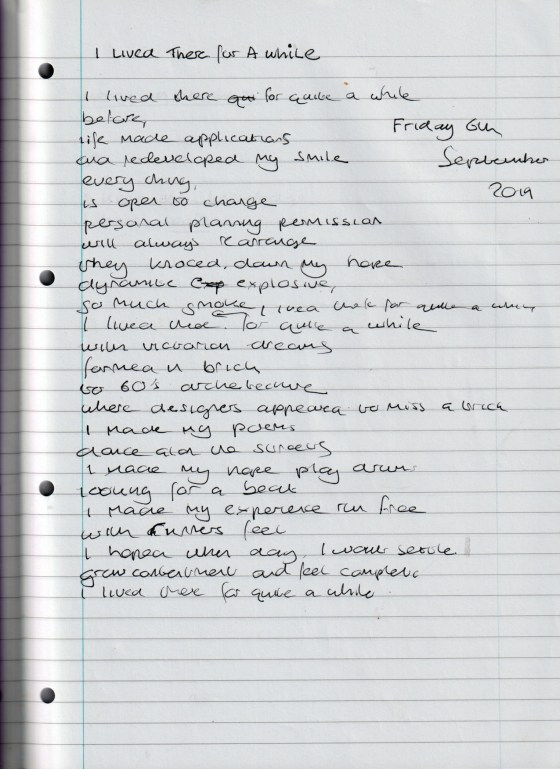 I Lived There for A while
I lived there for quite a while
before,
Friday 6th
life made applications
and redeveloped my smile
September
every thing,
2019
is open to change
personal planning permission
will always rearrange
they knoced down my hope
dynamite explosive,
so much smoke, I lived there for quite a while
I lived there for quite a while
with victorian dreams
formed in brick
to 60's architecture
where designers appeared to miss a brick
I made my poems
dance along the streets
I made my hope play drums
looking for a beat
I made my experience run free
with runners feet
I hoped when day I would settle
grow contentment and feel complete
I lived there for quite a while